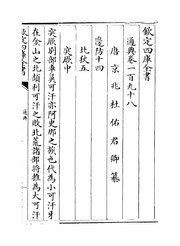 欽定四庫全書
通典卷一百九十八
唐京兆杜佑君卿纂
邊防十四
北狄五
突厥中
突厥別部車鼻可汗亦阿史那之族也代為小可汗牙
在金山之北頡利可汗之敗北荒諸部將推為大可汗
欽定四庫全書
通典